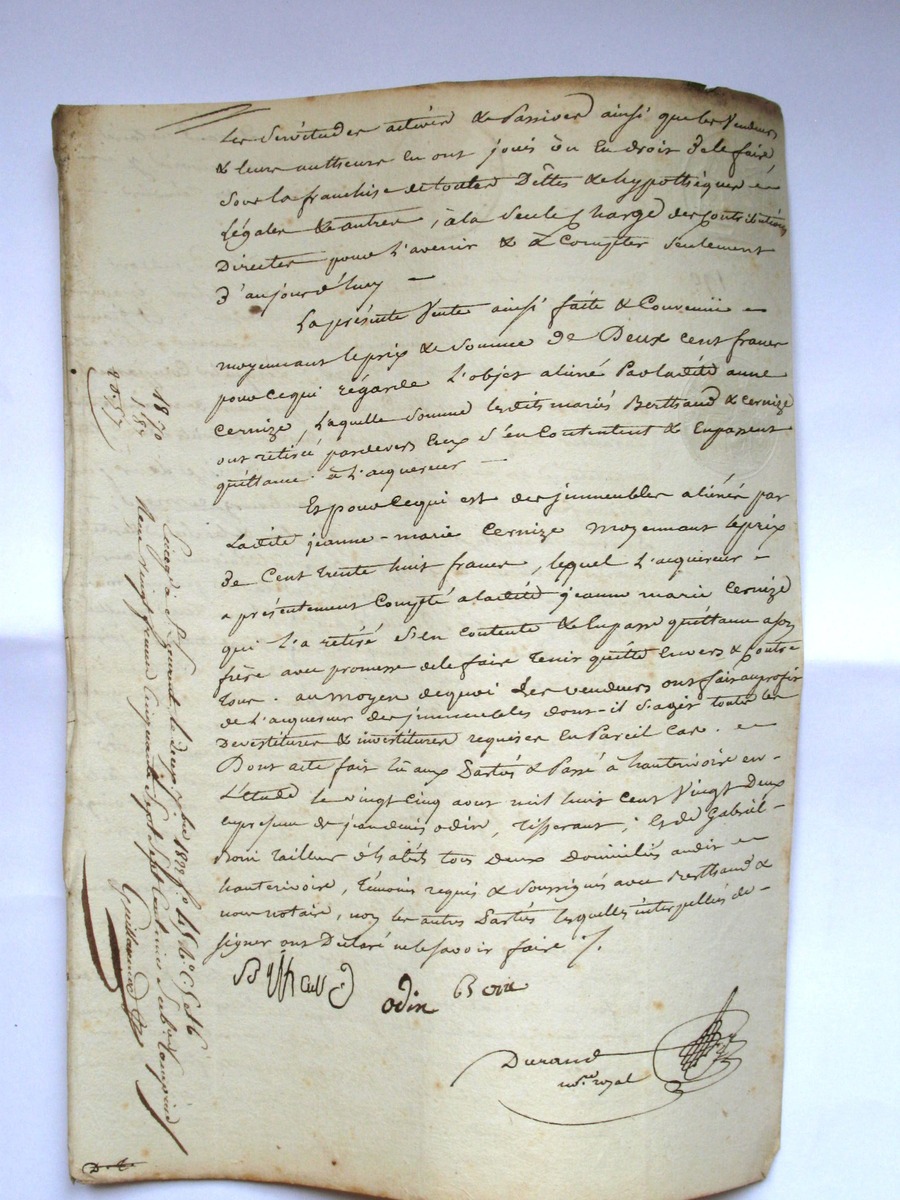 les servitudes actives & Passives ainsi que les Vendeurs
& leurs autheurs en ont joui ou eu droit de le faire
sous la franchise de toutes Dêttes & hypothéques
Légales & autres, à la seule Charge des Contributions
Directes pour L'avenir & à Compter seulement
d'aujourd'huy
La présente Vente ainsi faite & Convenue
moyennant le prix & somme de Deux cent francs
pour ce qui régarde L'objet aliéné Par ladite anne
Cernize, Laquelle somme lesdits mariés Berthaud & cernize
ont retiré pardevers Eux s'en Contentent & En passent
quittance à L'acquereur
Et pour ce qui est des jmmeubles aliénés par
Ladite jeanne-marie Cernize moyennant le prix
de Cent trente huit francs, lequel L'acquereur
a présentement Compté à ladite jeanne marie Cernize
qui l'a retiré s'en contente & En passe quittance à son
frère avec promesse de le faire tenir quitte Envers & Contre
tous. au moyen de quoi Les vendeurs ont fait au profit
de L'acquereur des jmmeubles dont-il s'agit toutes les
Devestitures & investitures requises En Pareil Cas.
Dont acte fait lû aux Parties & Passé à hauterivoire en
L'étude le vingt cinq aout mil huit cent Vingt Deux
en présence de jean denis odin, tisserant, & de Gabriel
Boin tailleur d'habits tous deux domiciliés audit
hauterivoire, témoins requis & Soussignés avec Berthaud &
nous notaire, non les autres Parties lesquelles interpellées de
signer ont Déclaré ne le savoir faire ./.
odin Boin
Durand
not.re royal
18 70
1 87
20 57
neuf vingt francs Cinquante Sept Centimes
Guillermin
D. T.